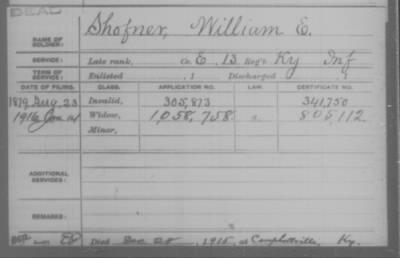 DEAD
NAME OF SOLDIER: Shofner, William E.
SERVICE: Late rank, Co. E, 13 Reg't Ky Inf
TERM OF SERVICE: Enlisted , 1 Discharged , 1
DATE OF FILING. CLASS. APPLICATION NO. LAW. CERTIFICATE NO.
1879 Aug. 23 Invalid, 305,873 341,750
1916 Jan 14 Widow, 1,058,758 805,112
Minor,
ADDITIONAL SERVICES:
REMARKS:
Died Dec 28, 1915, at Campbellsville, Ky.